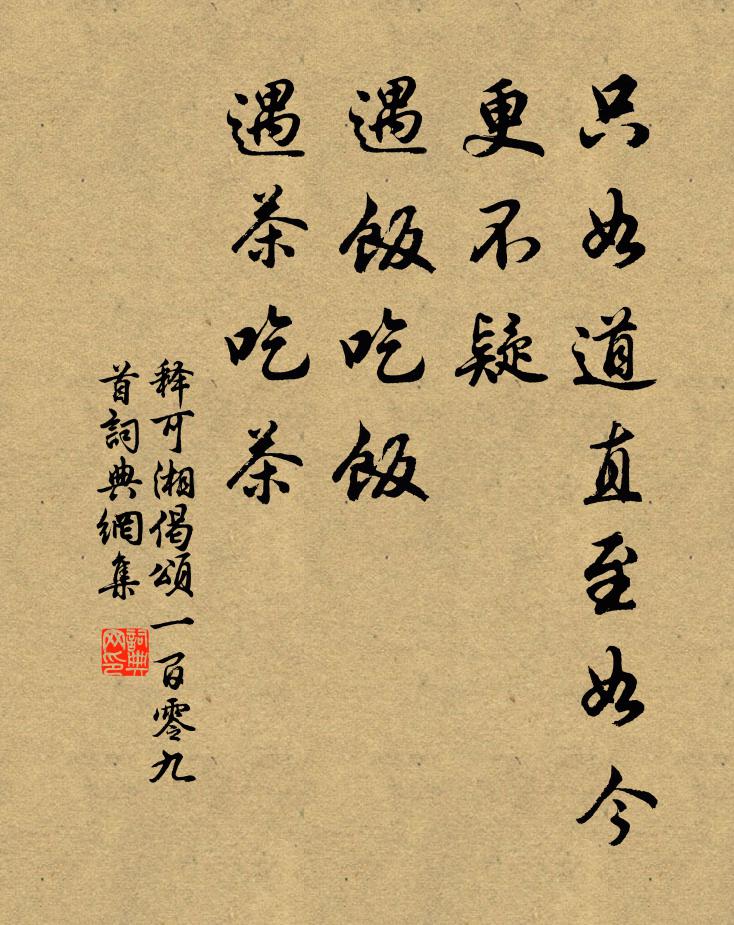 只如道直至如今
更不疑
遇飯吃飯
遇茶吃茶
释可湘偈頌一百零九
首詞典網集
詞典網印